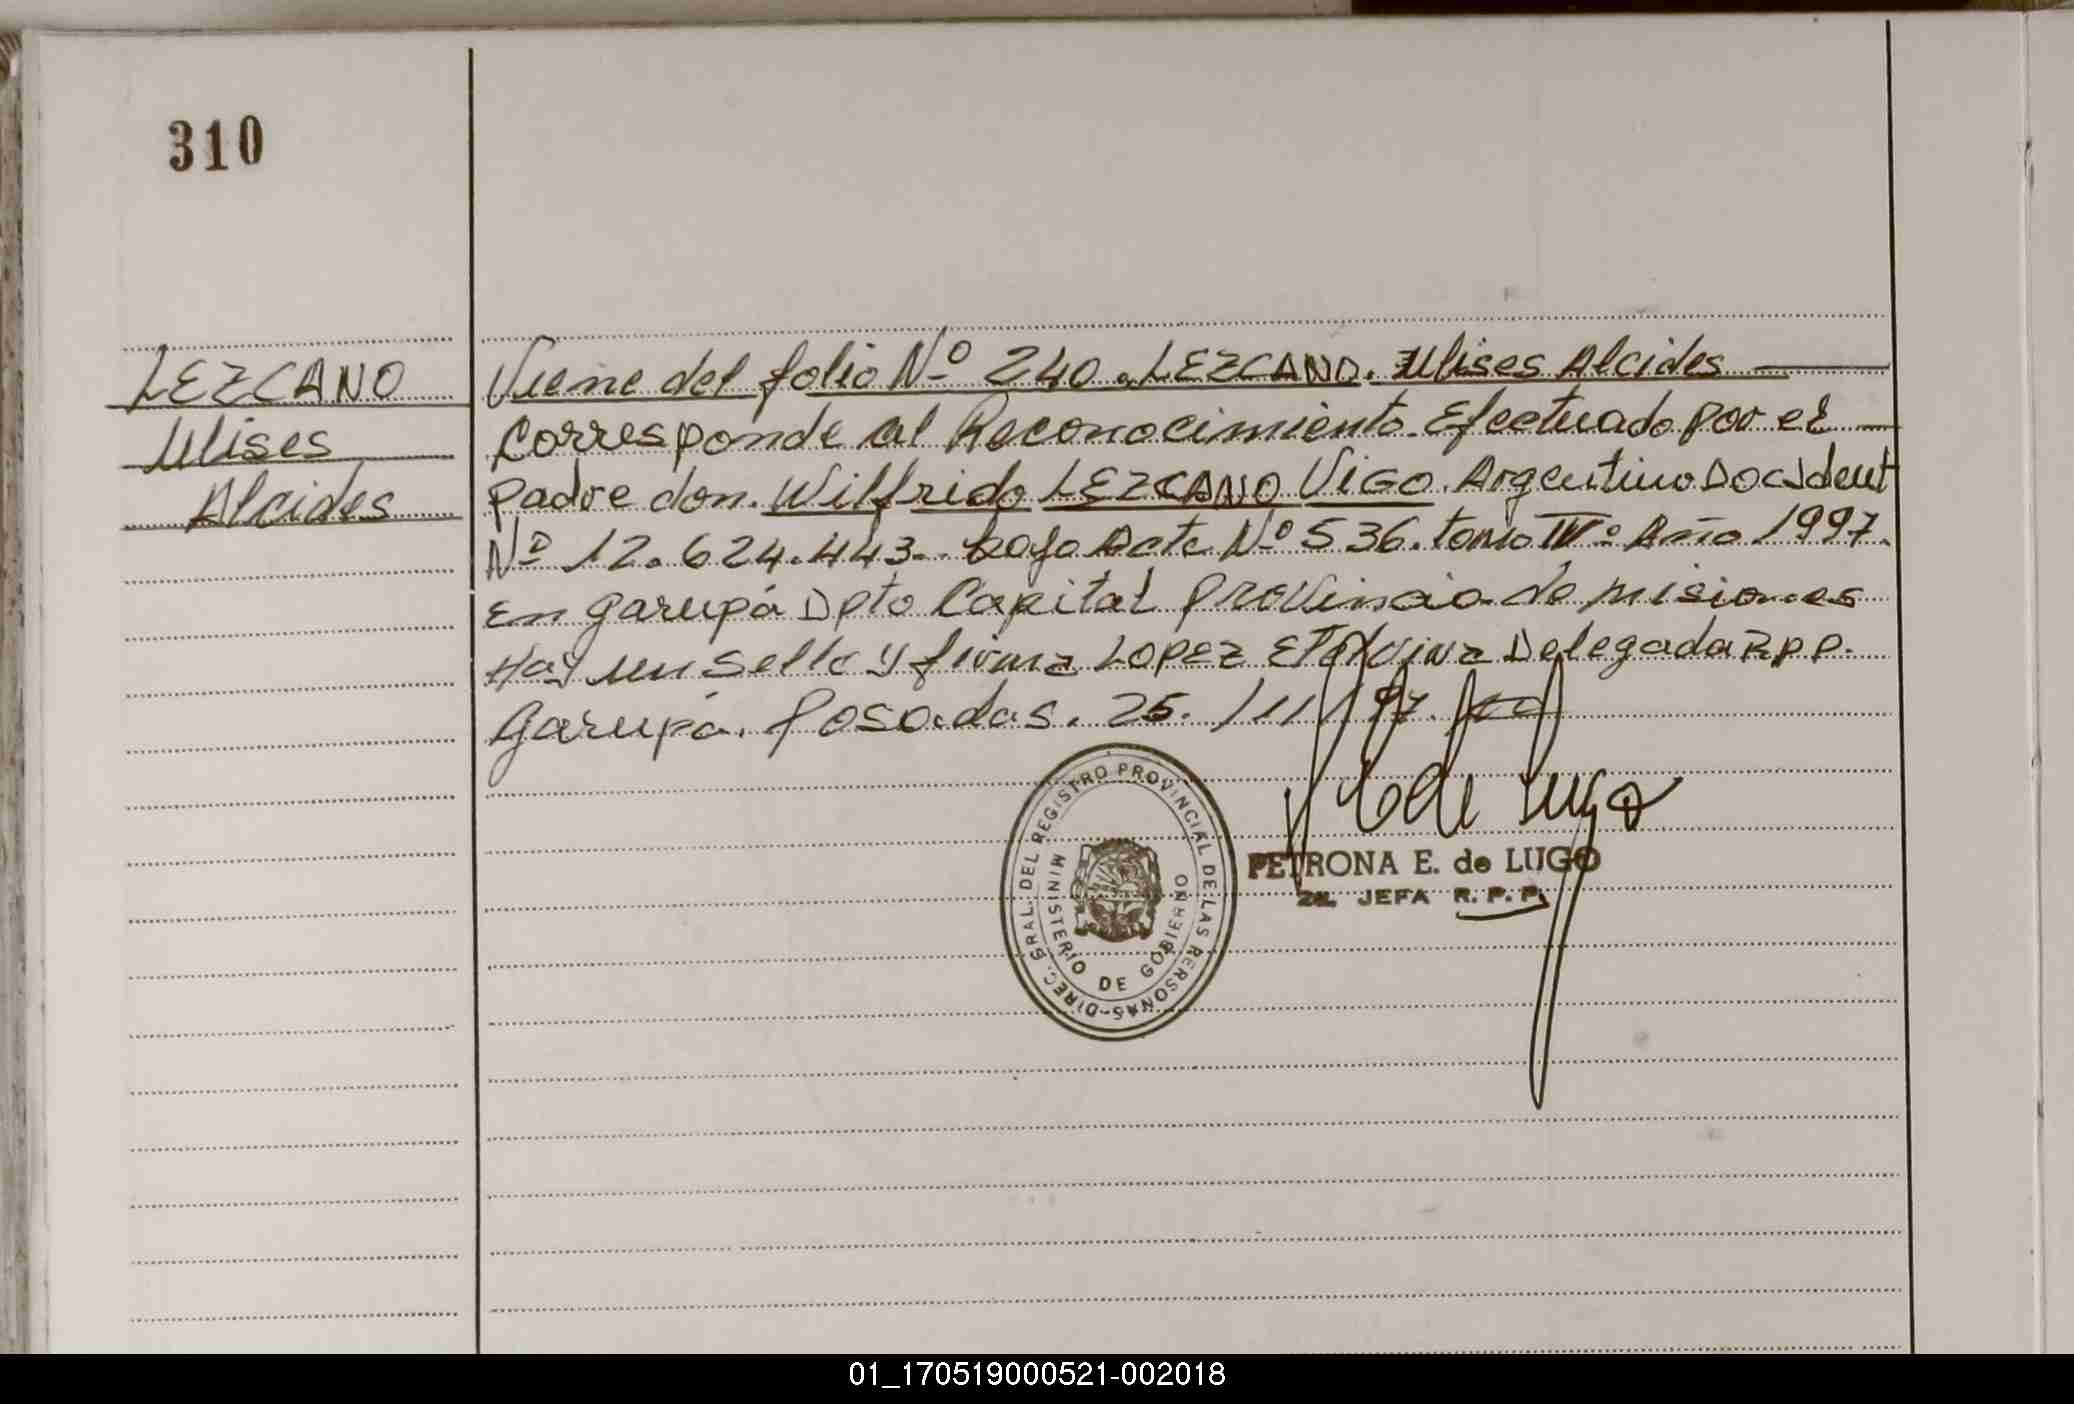 310
LEZCANO
Ulises
Alcides
Viene del folio Nº 240. LEZCANO. Ulises Alcides
Corresponde al Reconocimiento Efectuado por el
padre don. Wilfrido LEZCANO VIGO. Argentino Doc Ident
Nº 12.624.443.. bajo Acta Nº 536. tomo IVº Año 1997.
En Garupá Dpto Capital Provincia de Misiones
Hay un Sello y firma LOPEZ Etelvina Delegada R.P.P.
Garupá. Posadas. 25./11/97.
de Lugo
PETRONA E. de LUGO
2a. JEFA R.P.P.
DIREC. GRAL. DEL REGISTRO PROVINCIAL DE LAS PERSONAS-
MINISTERIO DE GOBIERNO
01_170519000521-002018